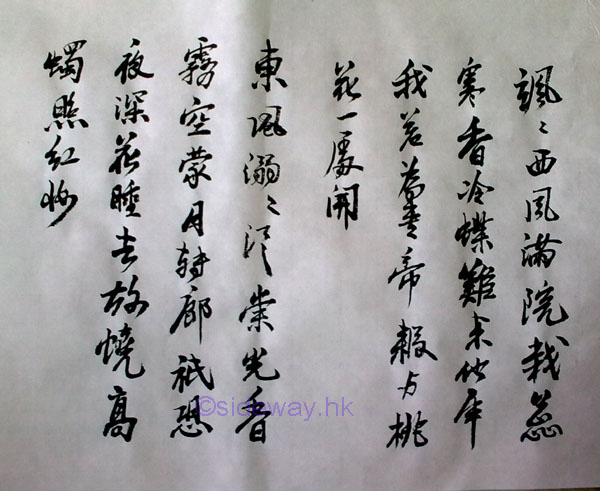 颯〻西風滿院栽蕊
寒香冷蝶難来他年
我若為青帝報与桃
花一處開
東風溺〻泛崇光香
霧空蒙月轉廊祇恐
夜深花睡去故燒高
燭照紅妝
©sideway.hk